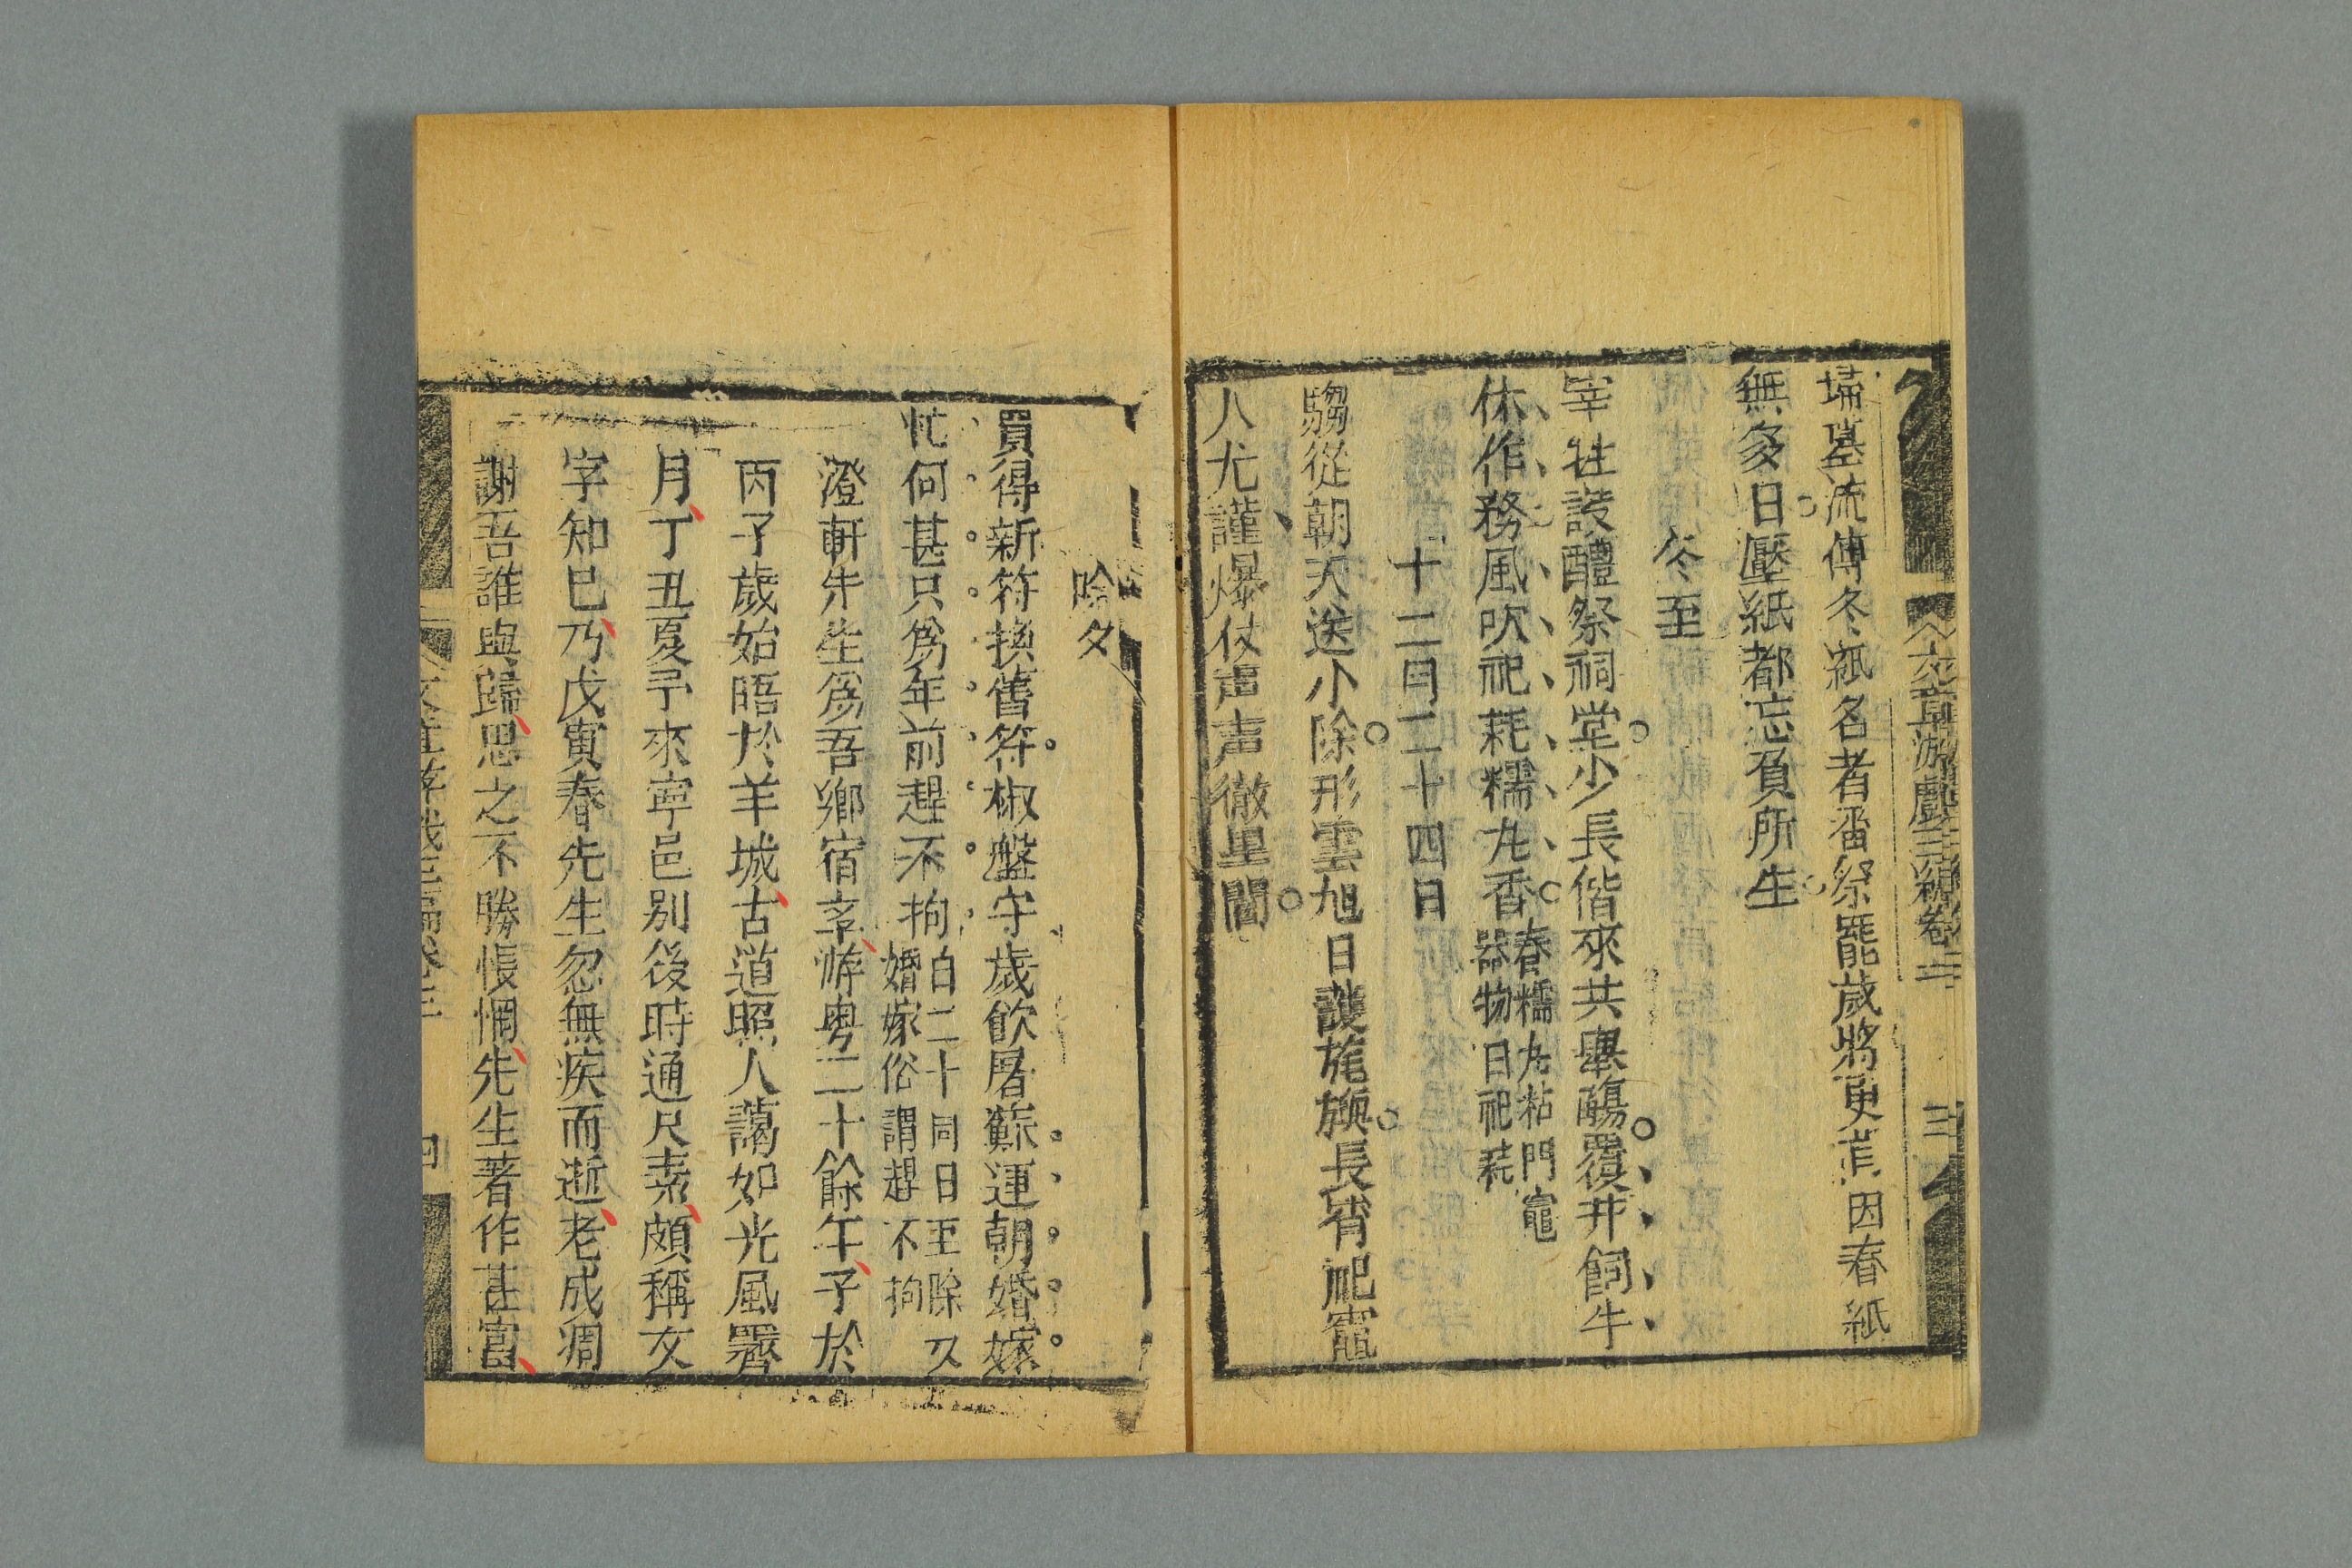 文章游戲三編卷三
三
墦墓流傳冬紙名者畨祭罷歲將更肯因春紙
無多日壓紙都忘負所生
冬至
宰牲設醴祭祠堂少長偕來共舉觴覆井飼牛
休作務風吹祀耗糯丸香
春糯丸粘門竈
器物曰祀耗
十二月二十四日
騶從朝天送小除彤雲旭日護旄旟長宵祀竈
人尤謹爆仗声声徹里閭
除夕
買得新符換舊符椒盤守歲飲屠蘇運朝婚嫁
忙何甚只為年前趕不拘
自二十同日至除夕
婚嫁俗謂趕不拘
澄軒先生為吾鄉宿享游粤二十餘年予於
丙子歲始晤於羊城古道照人藹如光風霽
月丁丑夏予來寧邑別後時通尺素頗稱文
字知巳乃戊寅春先生忽無疾而逝老成凋
謝吾誰與歸思之不勝悵惘先生著作甚富
文章游戲三編卷三
四